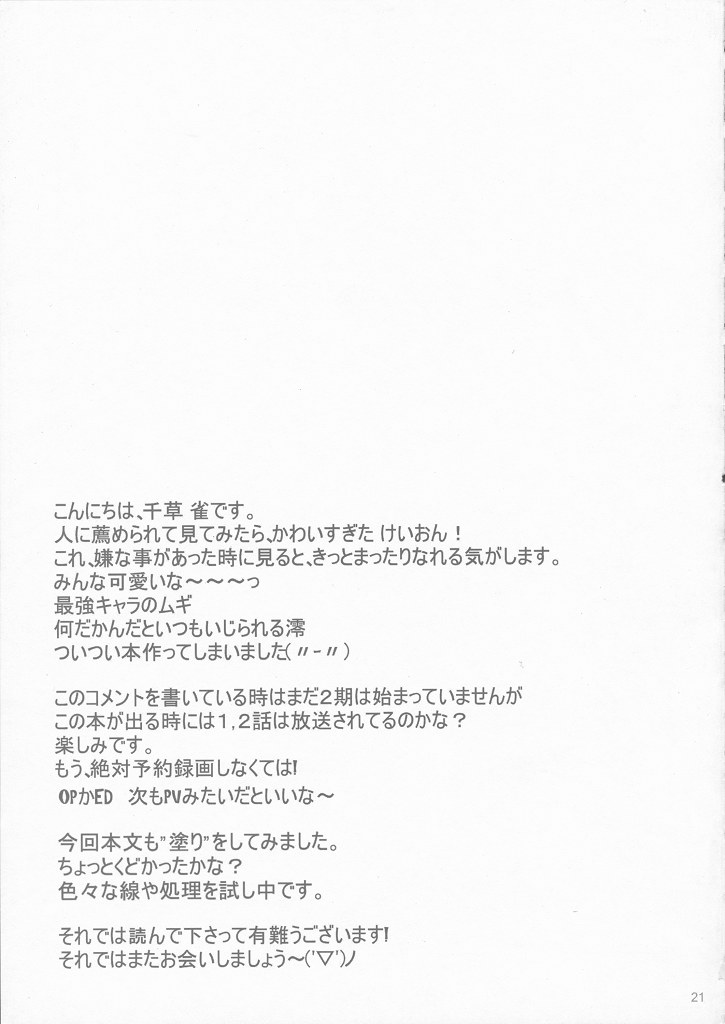 こんにちは、千草 雀です。
人に薦められて見てみたら、かわいすぎた けいおん！
これ、嫌な事があった時に見ると、きっとまったりなれる気がします。
みんな可愛いな～～～っ
最強キャラのムギ
何だかんだといつもいじられる澪
ついつい本作ってしまいました(〃-〃)
このコメントを書いている時はまだ２期は始まっていませんが
この本が出る時には１,２話は放送されてるのかな？
楽しみです。
もう、絶対予約録画しなくては!
OPかED　次もPVみたいだといいな～
今回本文も”塗り”をしてみました。
ちょっとくどかったかな？
色々な線や処理を試し中です。
それでは読んで下さって有難うございます!
それではまたお会いしましょう～('▽')ノ
21